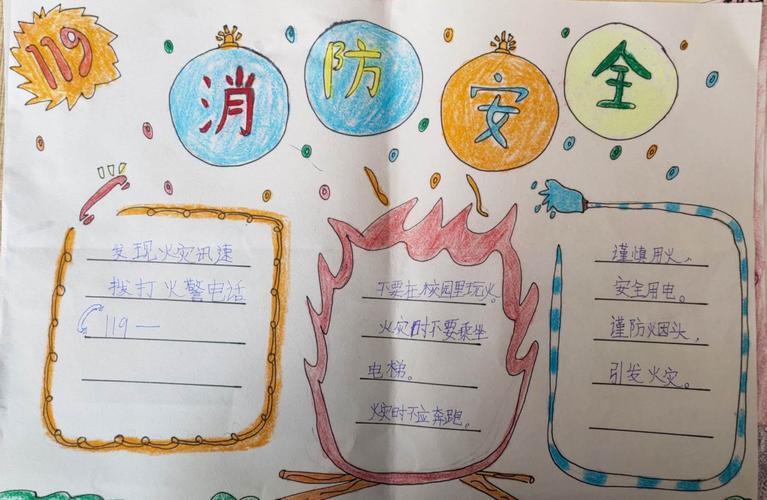 119
消防安全
发现火灾讯速
拨打火警电话
119—
不要在校园里玩火。
火灾时不要乘坐
电梯。
火灾时不应奔跑。
谨慎用火、
安全用电。
谨防烟头，
引发火灾。